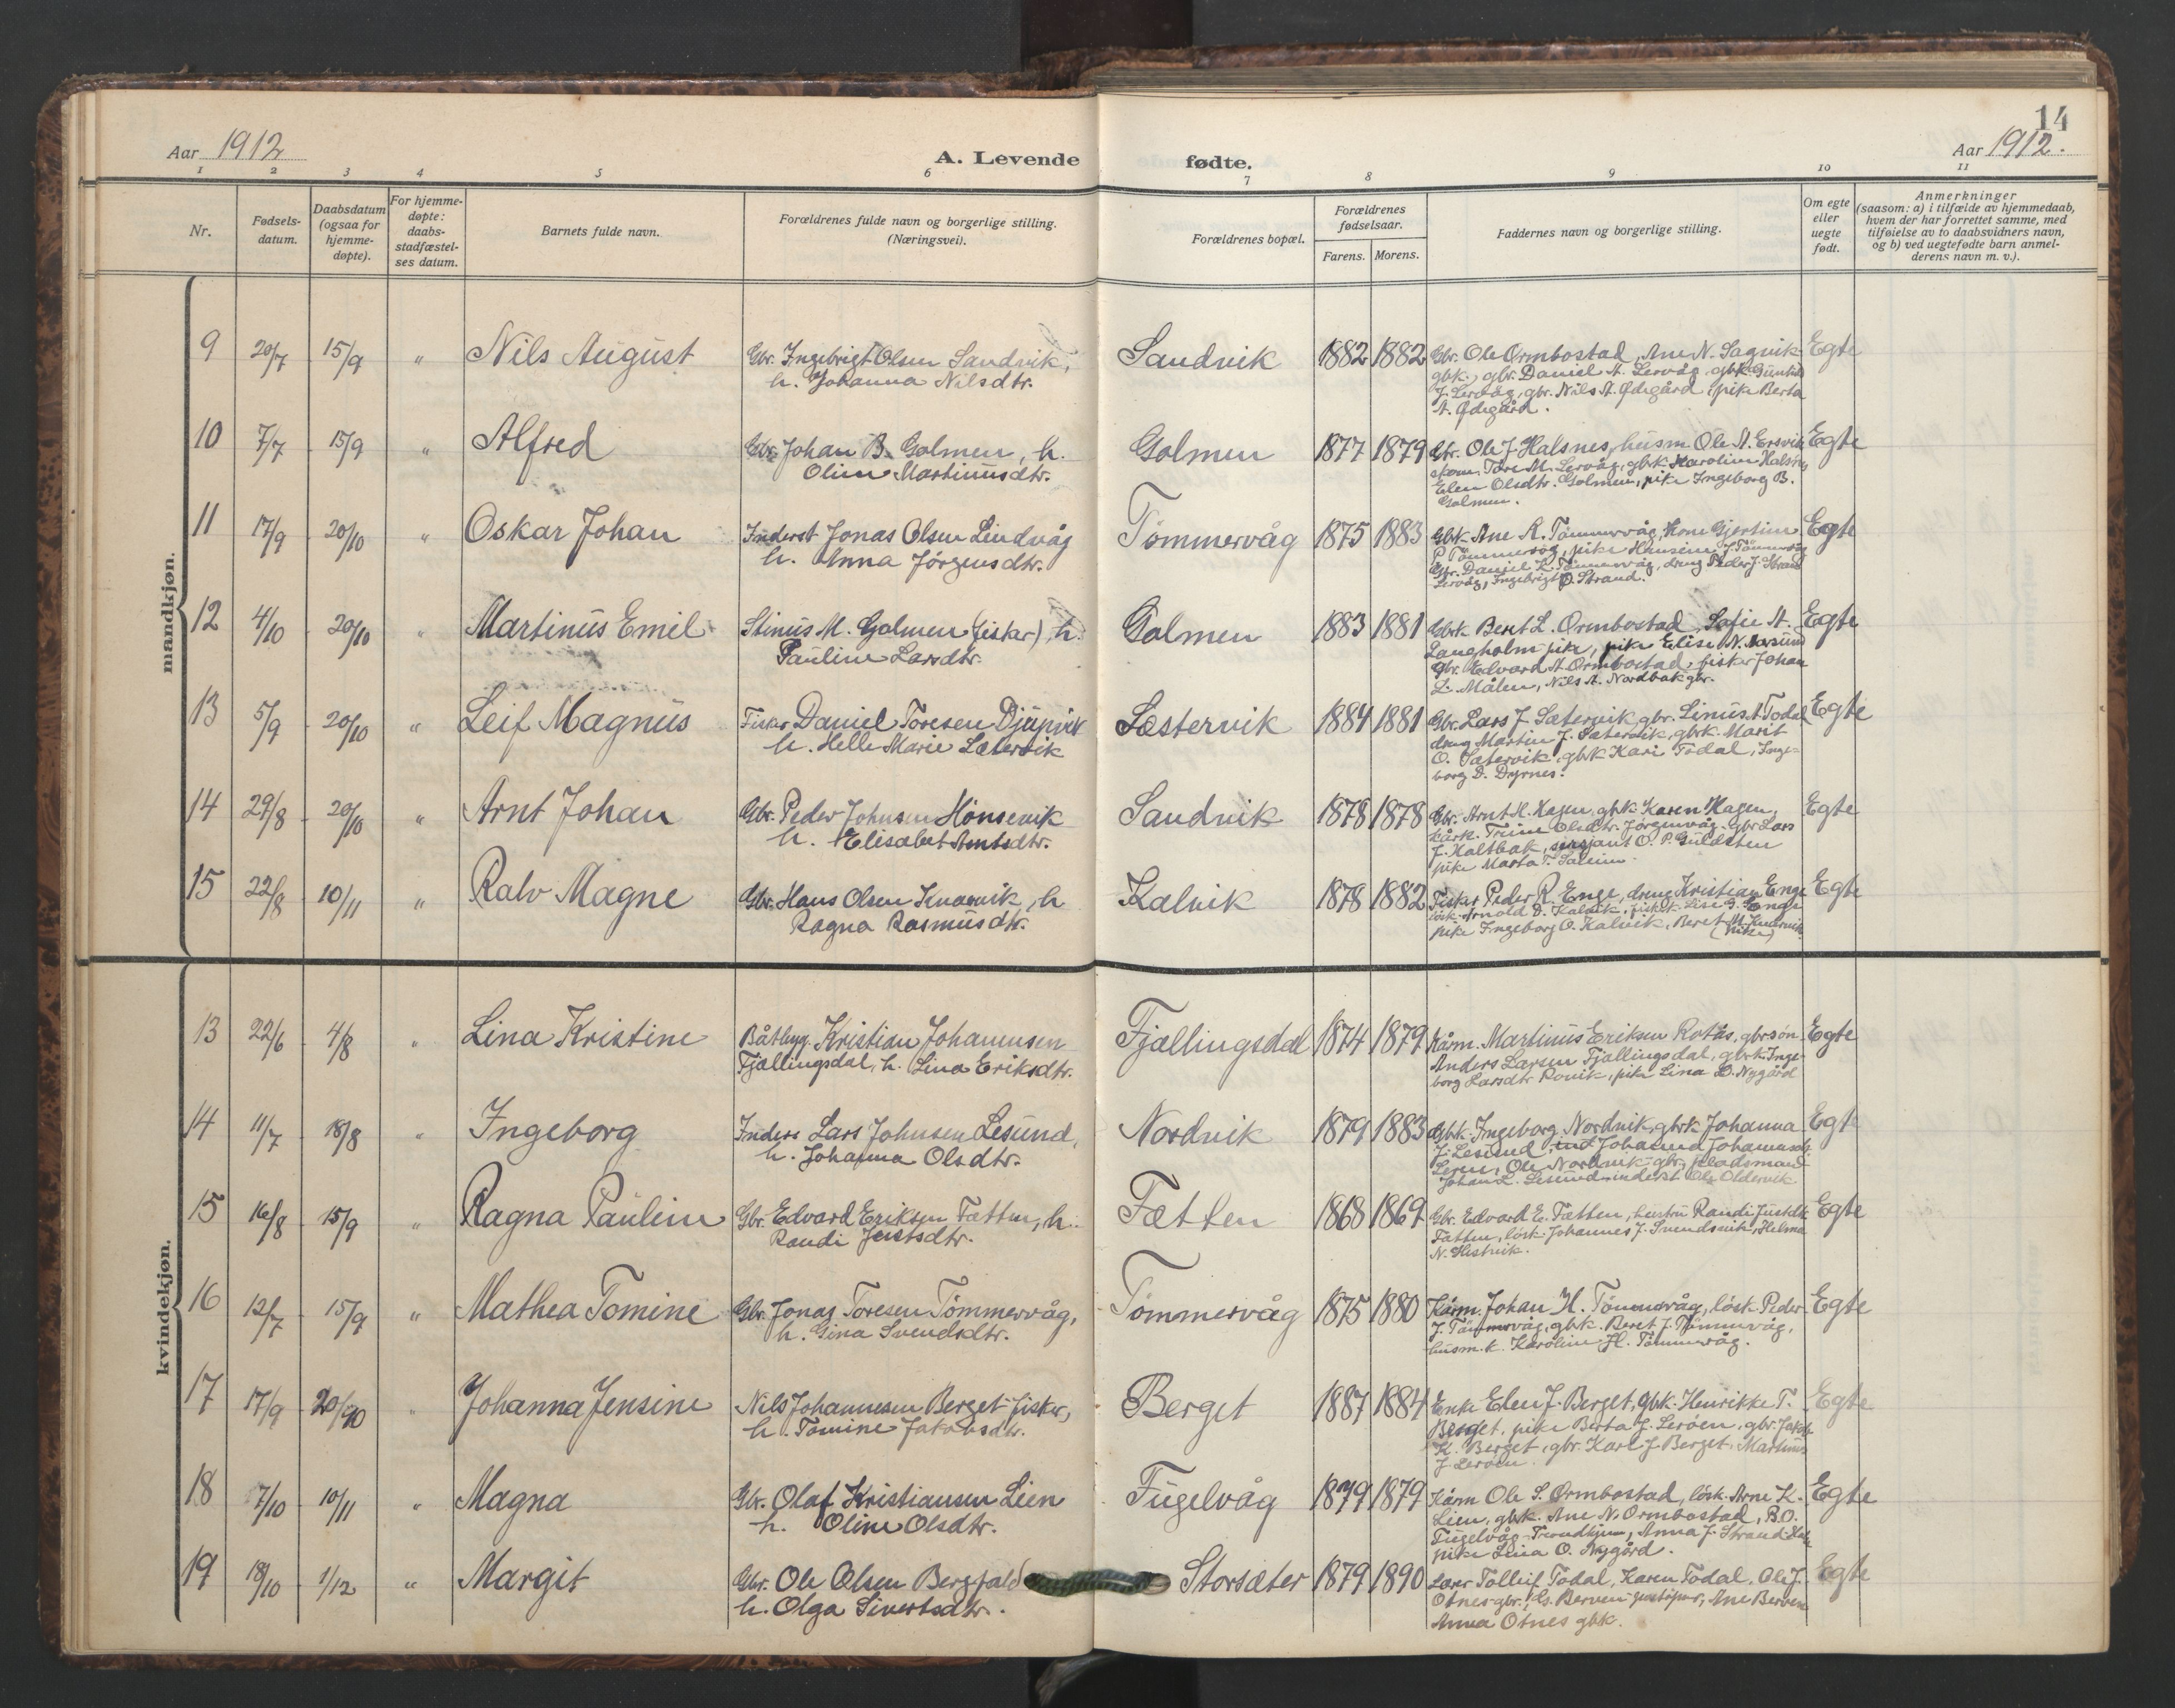 14
Aar 1912
A. Levende
fødte.
Aar 1912.
1 2 3 4 5 6 7 8 9 10 11
Nr.
Fødsels-
datum.
Daabsdatum
(ogsaa for
hjemme-
døpte).
For hjemme-
døpte:
daabs-
stadfæstel-
ses datum.
Barnets fulde navn.
Forældrenes fulde navn og borgerlige stilling.
(Næringsvei).
Forældrenes bopæl.
Forældrenes
fødselsaar.
Farens. Morens.
Faddernes navn og borgerlige stilling.
Om egte
eller
uegte
født.
Anmerkninger
(saasom: a) i tilfælde av hjemmedaab,
hvem der har forrettet samme, med
tilføielse av to daabsvidners navn,
og b) ved uegtefødte barn anmel-
derens navn m. v.).
mandkjøn.
9 20/7 15/9 " Nils August
Gbr. Ingebrigt Olsen Sandvik,
h. Johanna Nilsdtr.
Sandvik 1882 1882
Gbr. Ole Ormbostad, Ane N. Sagvik
gbk., gbr. Daniel A. Lervåg, gbk.
J. Lervåg, gbr. Nils A. Ødegård, pike Berta
A. Ødegård.
Egte
10 7/7 15/9 " Alfred
Gbr. Johan B. Golmen, h.
Oline Martinusdtr.
Golmen 1877 1879
Gbr. Ole J. Halsnes, husm. Ole A. Ersvik
Tore M. Lervåg, gbrk. Karoline Halsnes
Elen Olsdtr. Golmen, pike Ingeborg B.
Golmen.
Egte
11 17/9 20/10 " Oskar Johan
Inderst Jonas Olsen Lindvåg
h. Anna Jørgensdtr.
Tømmervåg 1875 1883
Gbk Ane R. Tømmervåg, Kone Gjertine
P. Tømmervåg, pike Hansine J. Tømmervåg
Gbr. Daniel K. Tømmervåg, dreng Peder J. Strand
Lervåg, Ingebrigt O. Strand.
Egte
12 4/10 20/10 " Martinus Emil
Stinus M. Golmen (fisker), h.
Pauline Larsdtr.
Golmen 1883 1881
Gbrk Beret L. Ormbostad, Sofie A.
Langholm pike, pike Elise N.
Gbr. Edvard A. Ormbostad, fisker Johan
L. Målen, Nils A. Nordbak gbr.
Egte
13 5/9 20/10 " Leif Magnus
Fisker Daniel Toresen Djupvik
h. Helle Marie Sætervik
Sæstervik 1884 1881
Gbr. Lars J. Sætervik, gbr. Linus A. Todal
dreng Martin J. Sætervik, gbrk. Marit
O. Sætervik, gbk Kari Todal, Inge-
borg D. Dyrnes.
Egte
14 29/8 20/10 " Arnt Johan
Gbr. Peder Johnsen Hønsevik
h. Elisabet Arntsdtr.
Sandvik 1878 1878
Gbr. Arnt H. Hagen, gbk. Karen Hagen,
kårk. Trine Olsdtr. Jørgenvåg, gbr. Lars
J. Haltbak, sersjant O. P. Guldsten
pike Marta T.
Egte
15 22/8 10/11 " Ralv Magne
Gbr. Hans Olsen Knarvik, h
Ragna Rasmusdtr.
Kalvik 1878 1882
Fisker Peder R. Enge, dreng Kristian Enge
løsk. Arnold D. Kalvik, pike Lise G. Enge
pike Ingeborg O. Kalvik, Beret M. Knarvik
(pike)
Egte
kvindekjøn.
13 22/6 4/8 " Lina Kristine
Båtbyg. Kristian Johannesen
Fjællingsdal, h. Lina Eriksdtr.
Fjællingsdal 1874 1879
Kårm. Martinus Eriksen Rotås, gbrsøn
Anders Larsen Fjællingsdal, gbrk. Inge-
borg Larsdtr Rovik, pike Lina D. Nygård
Egte
14 11/7 18/8 " Ingeborg
Inders Lars Johnsen Lesund,
h. Johanna Olsdtr.
Nordvik 1879 1883
Gbk. Ingeborg Nordvik, gbrk Johanna
J. Lesund, ind Johanna Johannesdtr
Ole Nordvik gbr, pladsmand
Johan L. Lesund inderst Ole Oldervik
Egte
15 16/8 15/9 " Ragna Paulein
Gbr. Edvard Eriksen Fætten, h.
Randi Justsdtr.
Fætten 1868 1869
Gbr. Edvard E. Fætten, hustru Randi Justdtr.
Fætten, løsk. Johannes J. Svendsvik, Helma
N.
Egte
16 12/7 15/9 " Mathea Tomine
Gbr. Jonas Toresen Tømmervåg,
h. Gina Svendsdtr.
Tømmervåg 1875 1880
Kårm. Johan H. Tømmervåg, løsk. Peder
J. Tømmervåg, gbk. Beret J. Tømmervåg,
husm. k. Karoline H. Tømmervåg.
Egte
17 17/9 20/90 " Johanna Jensine
Nils Johannesen Berget fisker,
h. Tomine Jakobsdtr.
Berget 1887 1884
Enke Elen J. Berget, gbk. Henrikke T.
Berget, pike Berta J. Lerøen, gbr. Jakob
K. Berget, gbr. Karl J. Berget, Martinus
J. Lerøen.
Egte
18 7/10 10/11 " Magna
Gbr. Olaf Kristiansen Lien
h. Oline Olsdtr.
Fugelvåg 1879 1879
Kårm Ole S. Ormbostad, løsk. Arne K.
Lien, gbk. Ane N. Ormbostad, B.O.
Fugelvåg Trondhjem, Anna J. Strand
pike Lina O. Nygård.
Egte
19 18/10 1/12 " Margit
Gbr. Ole Olsen Bergfald
h. Olga Sivertsdtr.
Storsæter 1879 1890
Lærer Tolleif Todal, Karen Todal, Ole J.
Otnes gbr., Berven, Ane Berven
Anna Otnes gbk.
Egte